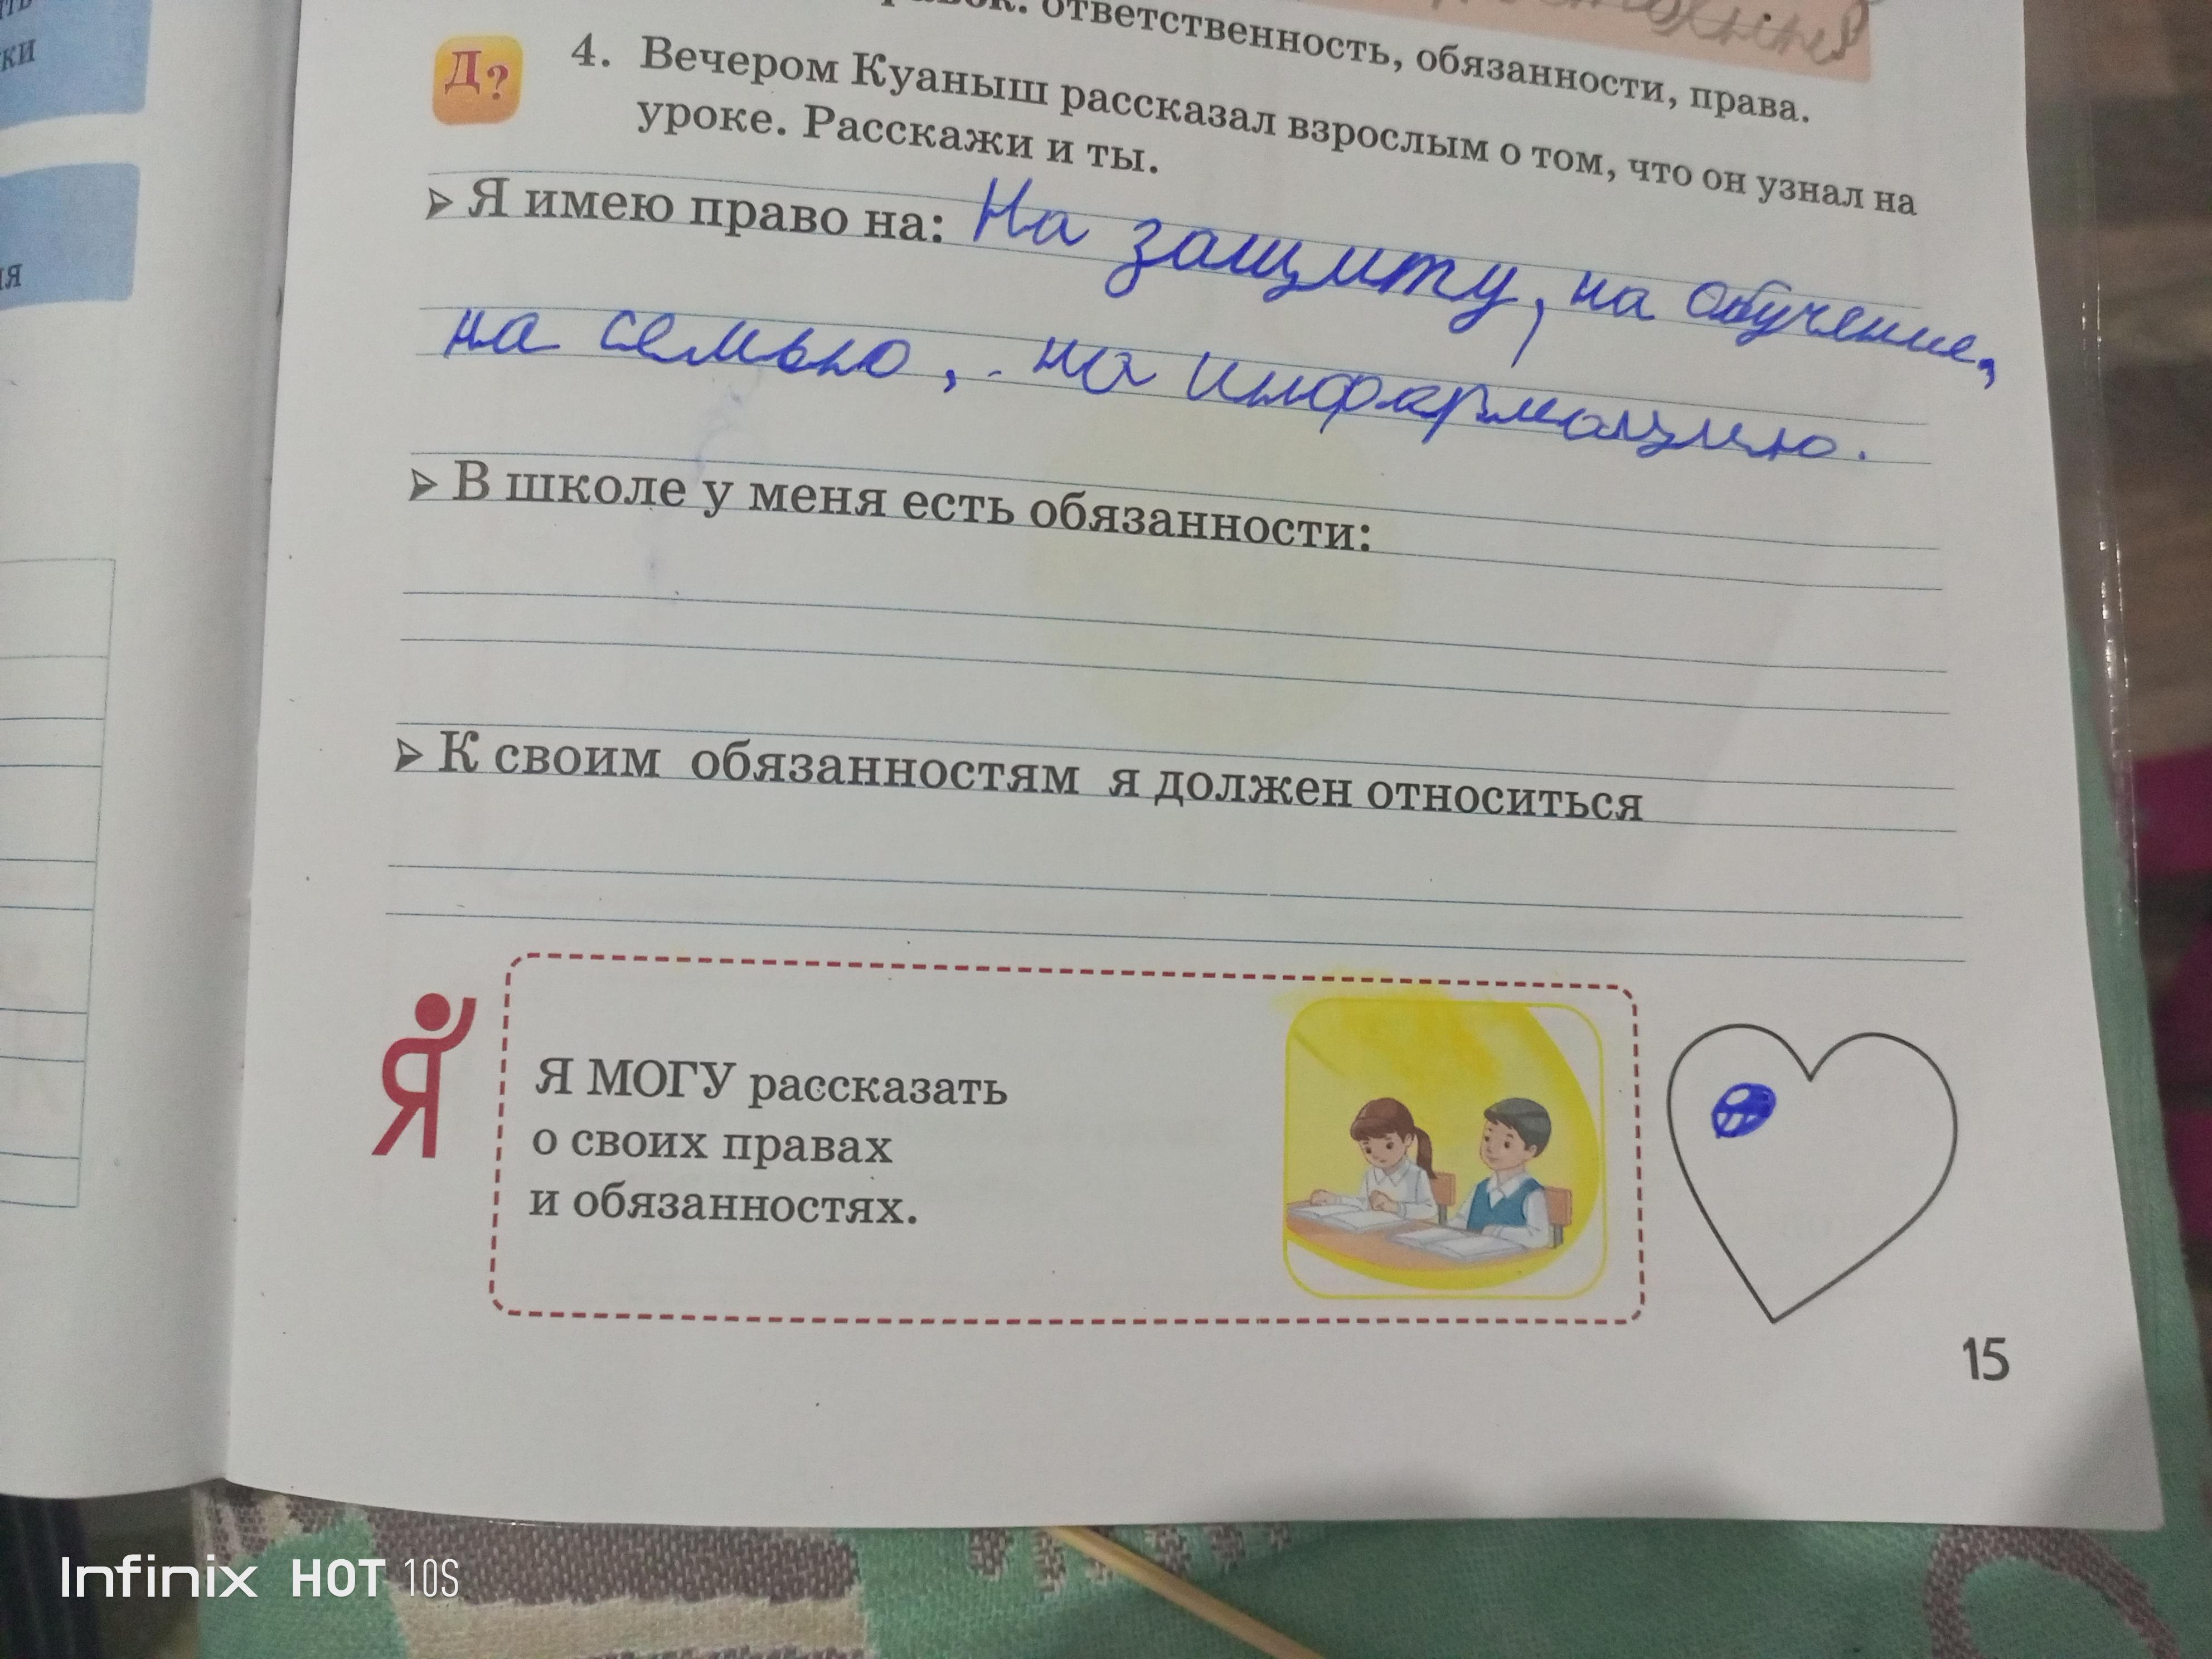 ки
ия
ответственность, обязанности, права.
Д?
4. Вечером Куаныш рассказал взрослым о том, что он узнал на
уроке. Расскажи и ты.
➢ Я имею право на: На защиту, на обучение,
на семью, на информацию.
➢ В школе у меня есть обязанности:
➢ К своим обязанностям я должен относиться
Я
Я МОГУ рассказать
о своих правах
и обязанностях.
15
Infinix HOT 10S